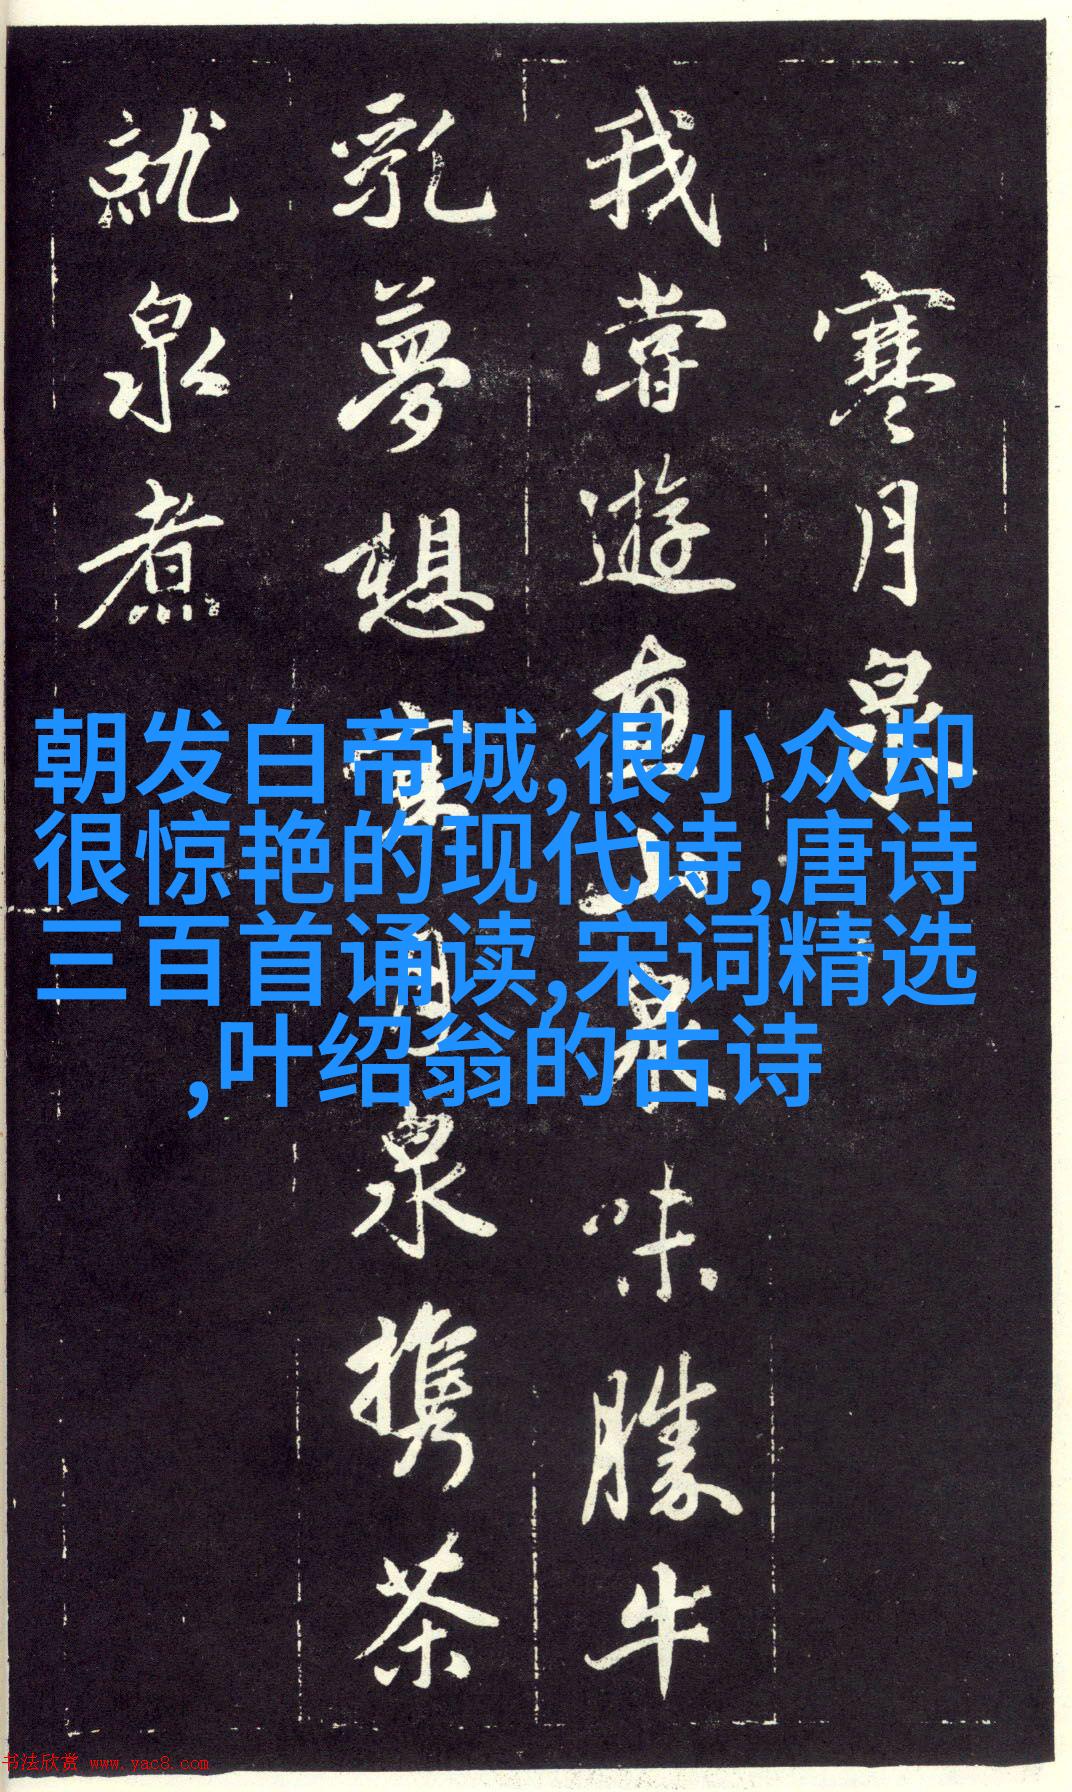 寒月泉
我嘗遊惠山泉味勝牛
乳夢想寒月泉攜茶
就泉煮
朝发白帝城,很小众却
很惊艳的现代诗,唐诗
三百首诵读,宋词精选
,叶绍翁的古诗
书法欣赏 www.yac8.com